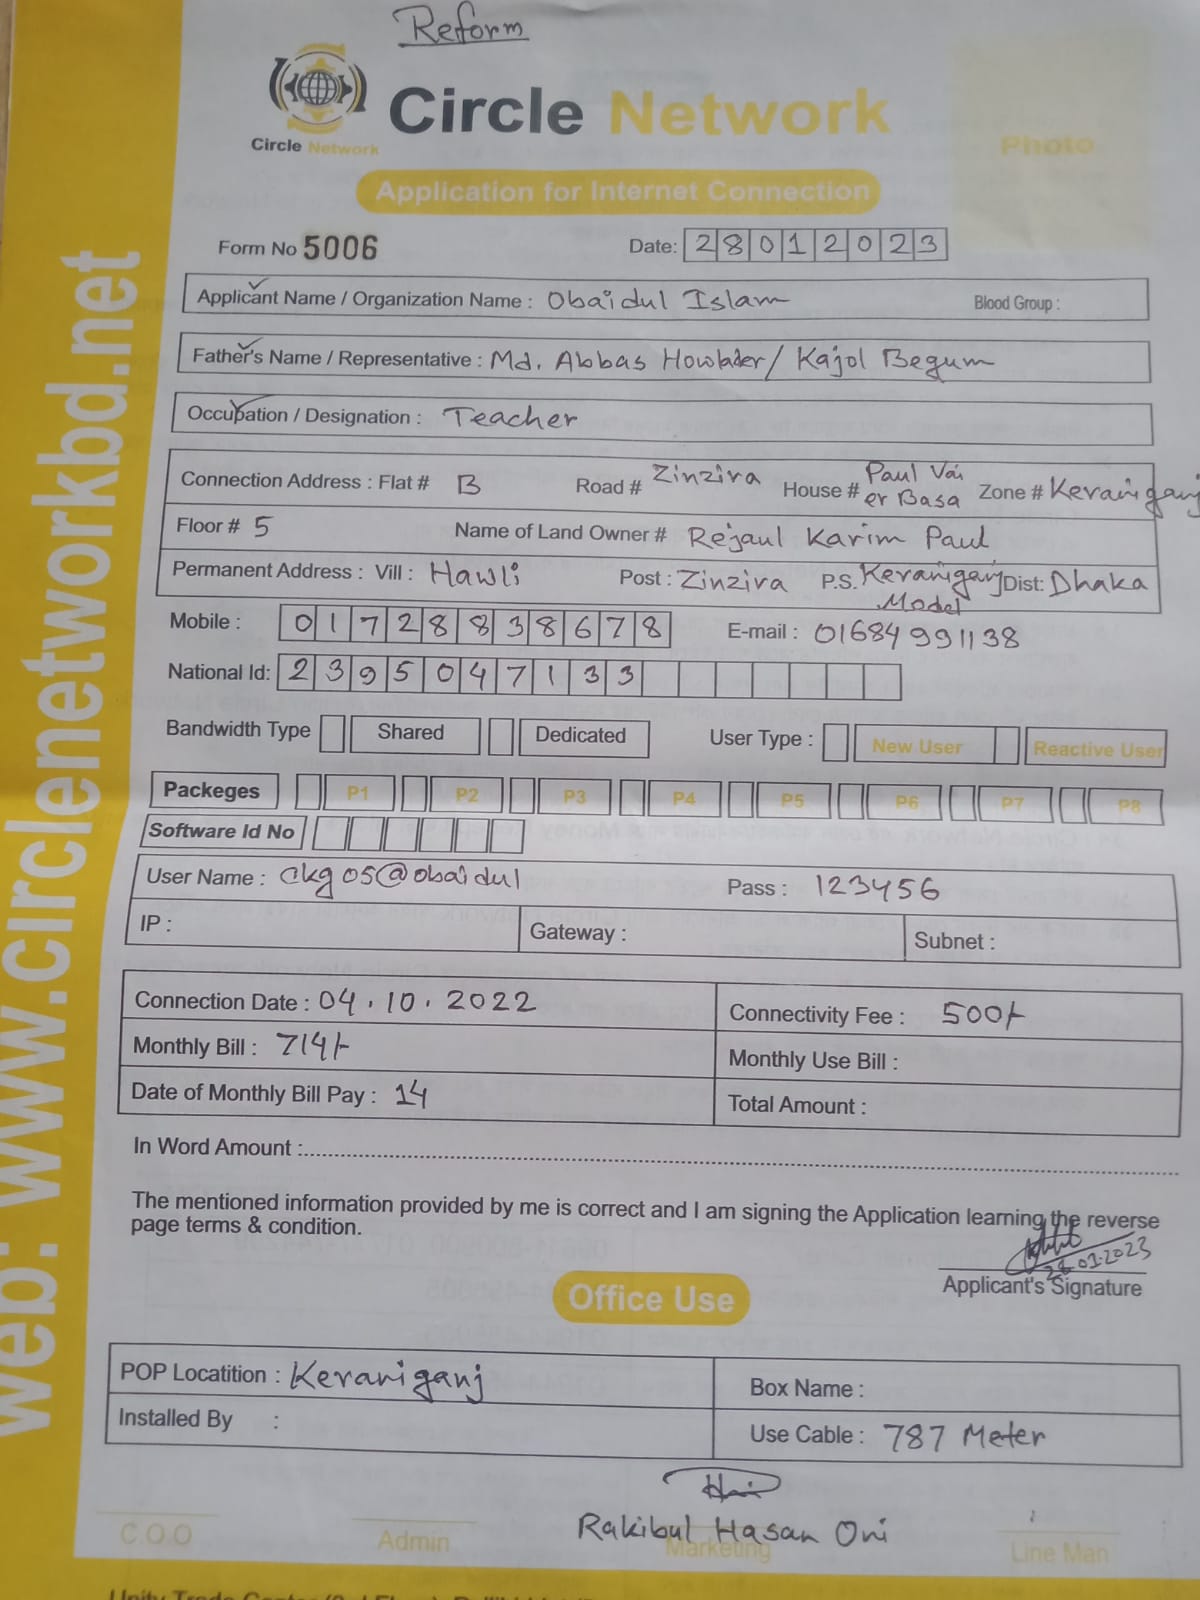 Reform
Circle Network
Circle Network
Photo
Application for Internet Connection
Form No 5006 Date: 28012023
Applicant Name / Organization Name : Obaidul Islam Blood Group :
Father's Name / Representative : Md. Abbas Howlader/ Kajol Begum
Occupation / Designation : Teacher
Connection Address : Flat # B Road # Zinzira House # Paul Vai er Basa Zone # Keraniganj
Floor # 5 Name of Land Owner # Rejaul Karim Paul
Permanent Address : Vill : Hawli Post : Zinzira P.S. Keraniganj Model Dist: Dhaka
Mobile : 01728838678 E-mail : 01684991138
National Id: 2395047133
Bandwidth Type Shared Dedicated User Type : New User Reactive User
Packeges P1 P2 P3 P4 P5 P6 P7 P8
Software Id No
User Name : ckg05@obaidul Pass : 123456
IP : Gateway : Subnet :
Connection Date : 04.10.2022 Connectivity Fee : 500/-
Monthly Bill : 714/- Monthly Use Bill :
Date of Monthly Bill Pay : 14 Total Amount :
In Word Amount :
The mentioned information provided by me is correct and I am signing the Application learning the reverse
page terms & condition.
28.01.2023
Applicant's Signature
Office Use
POP Locatition : Keraniganj Box Name :
Installed By : Use Cable : 787 Meter
Rakibul Hasan Oni
C.O.O Admin Marketing Line Man
web: www.circlenetworkbd.net